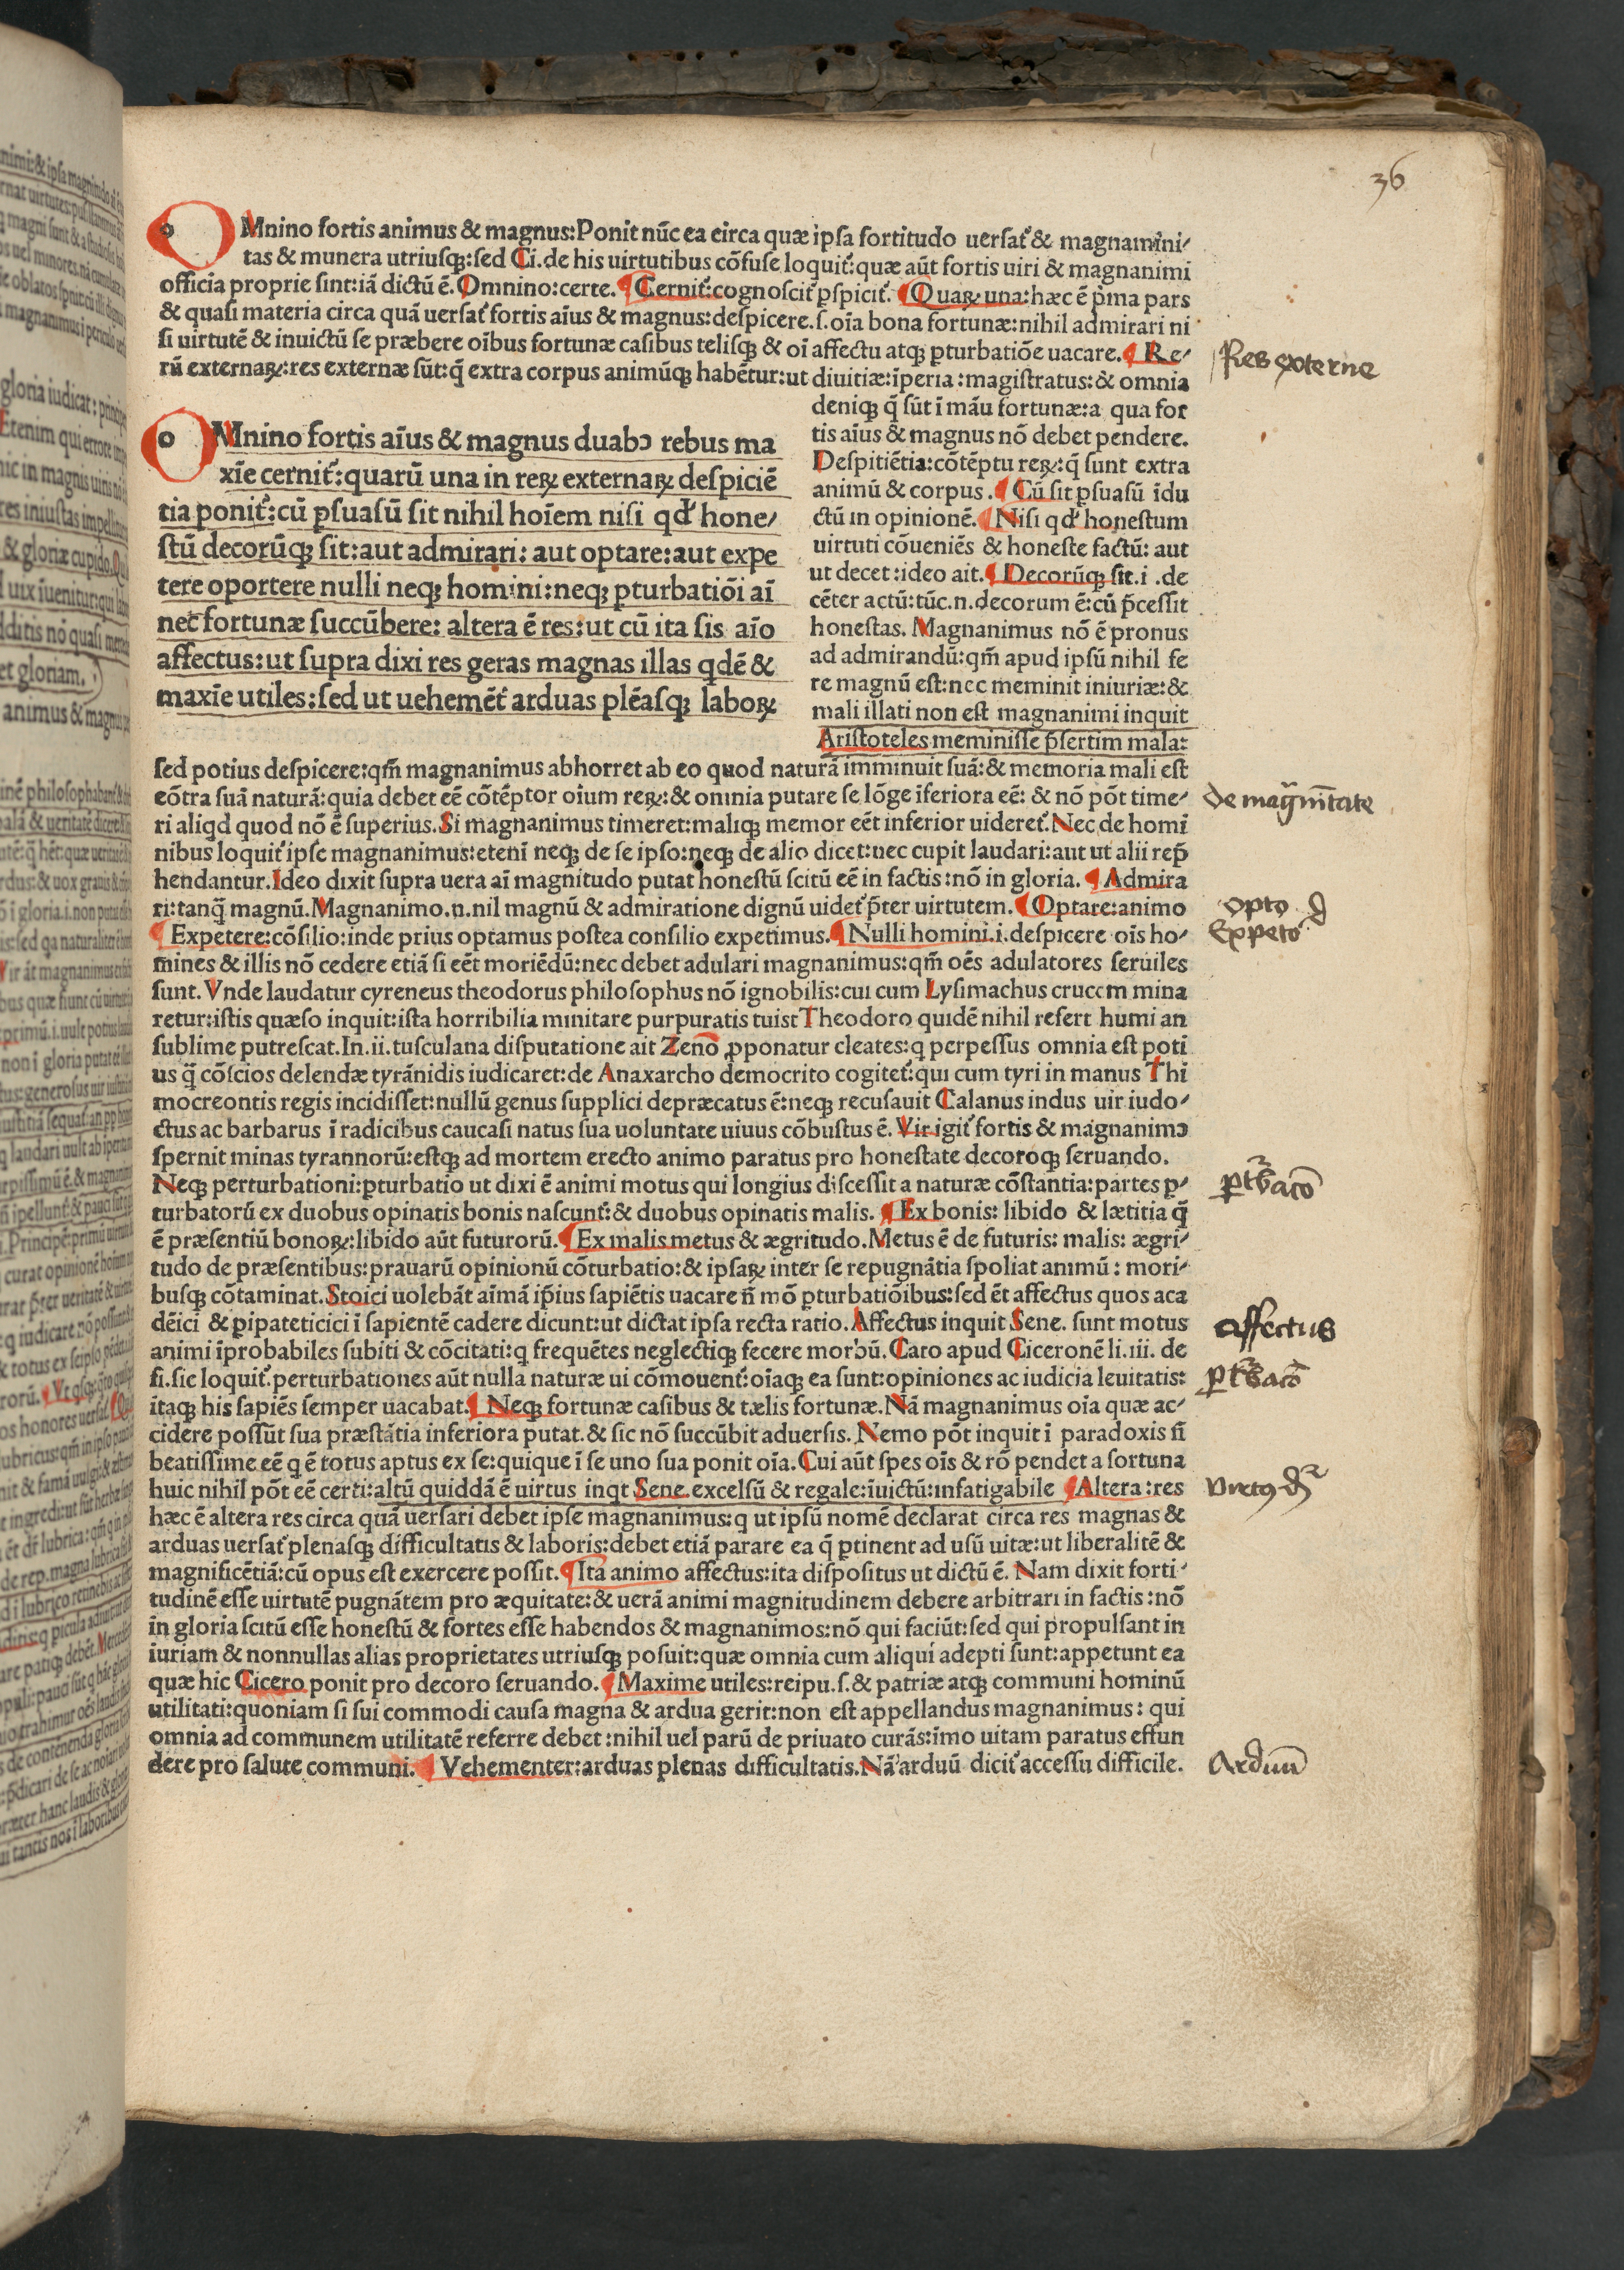 36
OMnino fortis animus & magnus:Ponit nūc ea circa quæ ipſa fortitudo uerſat̃ & magnamini⸗
tas & munera utriuſq;:ſed Ci.de his uirtutibus cōfuſe loquit̃:quæ aūt fortis uiri & magnanimi
officia proprie ſint:iā dictū ē. Omnino:certe. ¶ Cernit̃:cognoſcit̃ ꝑſpicit̃. ¶ Quaꝝ una:hæc ē p̃ma pars
& quaſi materia circa quā uerſat̃ fortis aīus & magnus:deſpicere.ſ.oīa bona fortunæ:nihil admirari ni
ſi uirtutē & inuictū ſe præbere oībus fortunæ caſibus teliſq; & oī affectu atq; ꝑturbatiōe uacare. ¶ Re⸗
rū externaꝝ:res externæ ſūt:q̄ extra corpus animūq; habētur:ut diuitiæ:īperia:magiſtratus:& omnia
Res externe
deniq; q̄ ſūt ī māu fortunæ:a qua for
tis aīus & magnus nō debet pendere.
Deſpitiētia:cōtēptu reꝝ:q̄ ſunt extra
animū & corpus. ¶ Cū ſit ꝑſuaſū īdu
ctū in opinionē. ¶ Niſi qđ honeſtum
uirtuti cōueniēs & honeſte factū: aut
ut decet:ideo ait. ¶ Decorūq; ſit.i.de
cēter actū:tūc.n.decorum ē:cū p̄ceſſit
honeſtas. Magnanimus nō ē pronus
ad admirandū:qm̄ apud ipſū nihil fe
re magnū eſt:nec meminit iniuriæ:&
mali illati non eſt magnanimi inquit
Ariſtoteles meminiſſe p̄ſertim mala:
OMnino fortis aīus & magnus duabꝰ rebus ma
xīe cernit̃:quarū una in reꝝ externaꝝ deſpiciē
tia ponit̃:cū ꝑſuaſū ſit nihil hoīem niſi qđ hone⸗
ſtū decorūq; ſit:aut admirari: aut optare:aut expe
tere oportere nulli neq; homini:neq; ꝑturbatiōi aī
nec fortunæ ſuccūbere: altera ē res:ut cū ita ſis aīo
affectus:ut ſupra dixi res geras magnas illas qdē &
maxīe utiles:ſed ut uehemēt̃ arduas plēaſq; laboꝝ
ſed potius deſpicere:qm̄ magnanimus abhorret ab eo quod naturā imminuit ſuā:& memoria mali eſt
cōtra ſuā naturā:quia debet eē cōtēptor oīum reꝝ:& omnia putare ſe lōge īferiora eē: & nō pōt time⸗
de mag̃nītate
ri aliqd quod nō ē ſuperius.Si magnanimus timeret:maliq; memor eēt inferior uideret̃.Nec de homī
nibus loquit̃ ipſe magnanimus:etenī neq; de ſe ipſo:neq; de alio dicet:nec cupit laudari:aut ut alii rep̄
hendantur.Ideo dixit ſupra uera aī magnitudo putat honeſtū ſcitū eē in factis:nō in gloria. ¶ Admira
ri:tanq̄ magnū.Magnanimo.n.nil magnū & admiratione dignū uidet̃ p̄ter uirtutem. ¶ Optare:animo
opto
¶ Expetere:cōſilio:inde prius optamus poſtea conſilio expetimus. ¶ Nulli homini.i.deſpicere oīs ho⸗
Expeto
mines & illis nō cedere etiā ſi eēt moriēdū:nec debet adulari magnanimus:qm̄ oēs adulatores ſeruiles
ſunt.Vnde laudatur cyreneus theodorus philoſophus nō ignobilis:cui cum Lyſimachus crucem mina
retur:iſtis quæſo inquit:iſta horribilia minitare purpuratis tuis:Theodoro quidē nihil refert humi an
ſublime putreſcat.In.ii.tuſculana diſputatione ait Zeno ꝓponatur cleates:q perpeſſus omnia eſt poti
us q̄ cōſcios delendæ tyrānidis iudicaret:de Anaxarcho democrito cogitet̃:qui cum tyri in manus Thi
mocreontis regis incidiſſet:nullū genus ſupplici depræcatus ē:neq; recuſauit Calanus indus uir iudo⸗
ctus ac barbarus ī radicibus caucaſi natus ſua uoluntate uiuus cōbuſtus ē. Vir igit̃ fortis & magnanimꝰ
ſpernit minas tyrannorū:eſtq; ad mortem erecto animo paratus pro honeſtate decoroq; ſeruando.
Neq; perturbationi:ꝑturbatio ut dixi ē animi motus qui longius diſceſſit a naturæ cōſtantia:partes ꝑ⸗
ꝑt̃bacō
turbatorū ex duobus opinatis bonis naſcunt̃:& duobus opinatis malis. ¶ Ex bonis: libido & lætitia q̄
ē præſentiū bonoꝝ:libido aūt futurorū. ¶ Ex malis metus & ægritudo.Metus ē de futuris: malis: ægri⸗
tudo de præſentibus:prauarū opinionū cōturbatio:& ipſaꝝ inter ſe repugnātia ſpoliat animū: mori⸗
buſq; cōtaminat.Stoici uolebāt aīmā ip̄ius ſapiētis uacare n̄ mō ꝑturbatiōibus:ſed ēt affectus quos aca
dēici & ꝑipateticici ī ſapientē cadere dicunt:ut dictat ipſa recta ratio.Affectus inquit Sene. ſunt motus
affectus
animi īprobabiles ſubiti & cōcitati:q frequētes neglectiq; fecere morbū. Caro apud Ciceronē li.iii. de
fi.ſic loquit̃.perturbationes aūt nulla naturæ ui cōmouent̃:oīaq; ea ſunt:opiniones ac iudicia leuitatis:
ꝑt̃bacō
itaq; his ſapiēs ſemper uacabat. ¶ Neq; fortunæ caſibus & tælis fortunæ. Nā magnanimus oīa quæ ac⸗
cidere poſſūt ſua præſtātia inferiora putat.& ſic nō ſuccūbit aduerſis. Nemo pōt inquit ī paradoxis n̄
beatiſſime eē q ē totus aptus ex ſe:quique ī ſe uno ſua ponit oīa.Cui aūt ſpes oīs & rō pendet a fortuna
huic nihil pōt eē certi:altū quiddā ē uirtus inqt Sene.excelſū & regale:īuictū:infatigabile ¶ Altera:res
hæc ē altera res circa quā uerſari debet ipſe magnanimus:q ut ipſū nomē declarat circa res magnas &
arduas uerſat̃ plenaſq; difficultatis & laboris:debet etiā parare ea q̄ ꝑtinent ad uſū uitæ:ut liberalitē &
magnificētiā:cū opus eſt exercere poſſit. ¶ Ita animo affectus:ita diſpoſitus ut dictū ē. Nam dixit forti⸗
tudinē eſſe uirtutē pugnātem pro æquitate:& uerā animi magnitudinem debere arbitrari in factis:nō
in gloria ſcitū eſſe honeſtū & fortes eſſe habendos & magnanimos:nō qui faciūt:ſed qui propulſant in
iuriam & nonnullas alias proprietates utriuſq; poſuit:quæ omnia cum aliqui adepti ſunt:appetunt ea
quæ hic Cicero ponit pro decoro ſeruando. ¶ Maxime utiles:reipu.ſ.& patriæ atq; communi hominū
utilitati:quoniam ſi ſui commodi cauſa magna & ardua gerit:non eſt appellandus magnanimus: qui
omnia ad communem utilitatē referre debet:nihil uel parū de priuato curās:imo uitam paratus effun
dere pro ſalute communi. ¶ Vehementer:arduas plenas difficultatis.Nā arduū dicit̃ acceſſu difficile.
Arduū